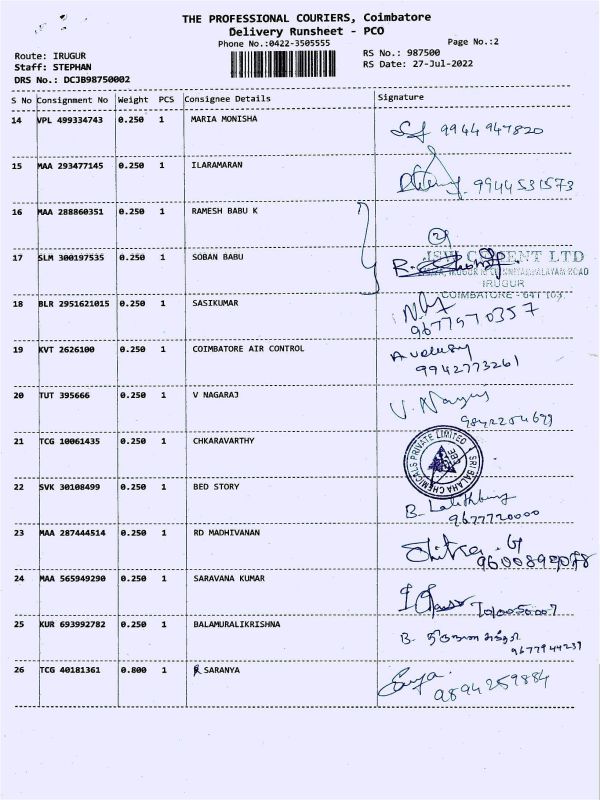 THE PROFESSIONAL COURIERS, Coimbatore
Delivery Runsheet - PCO
Phone No.:0422-3505555
Page No.:2
Route: IRUGUR
RS No.: 987500
Staff: STEPHAN
RS Date: 27-Jul-2022
DRS No.: DCJB98750002
S No Consignment No Weight PCS Consignee Details Signature
14 VPL 499334743 0.250 1 MARIA MONISHA 9944947820
15 MAA 293477145 0.250 1 ILARAMARAN 9944531573
16 MAA 288860351 0.250 1 RAMESH BABU K
2
17 SLM 300197535 0.250 1 SOBAN BABU
IRUGUR
COIMBATORE - 641 103
18 BLR 2951621015 0.250 1 SASIKUMAR
9677570357
19 KVT 2626100 0.250 1 COIMBATORE AIR CONTROL
9942773261
20 TUT 395666 0.250 1 V NAGARAJ V. Nagaraj
21 TCG 10061435 0.250 1 CHKARAVARTHY
SRI BALAHA CHEMICALS PRIVATE LIMITED
CBE
22 SVK 30108499 0.250 1 BED STORY
9677720000
23 MAA 287444514 0.250 1 RD MADHIVANAN
24 MAA 565949290 0.250 1 SARAVANA KUMAR
25 KUR 693992782 0.250 1 BALAMURALIKRISHNA B.
9677944239
26 TCG 40181361 0.800 1 R SARANYA
9894259884